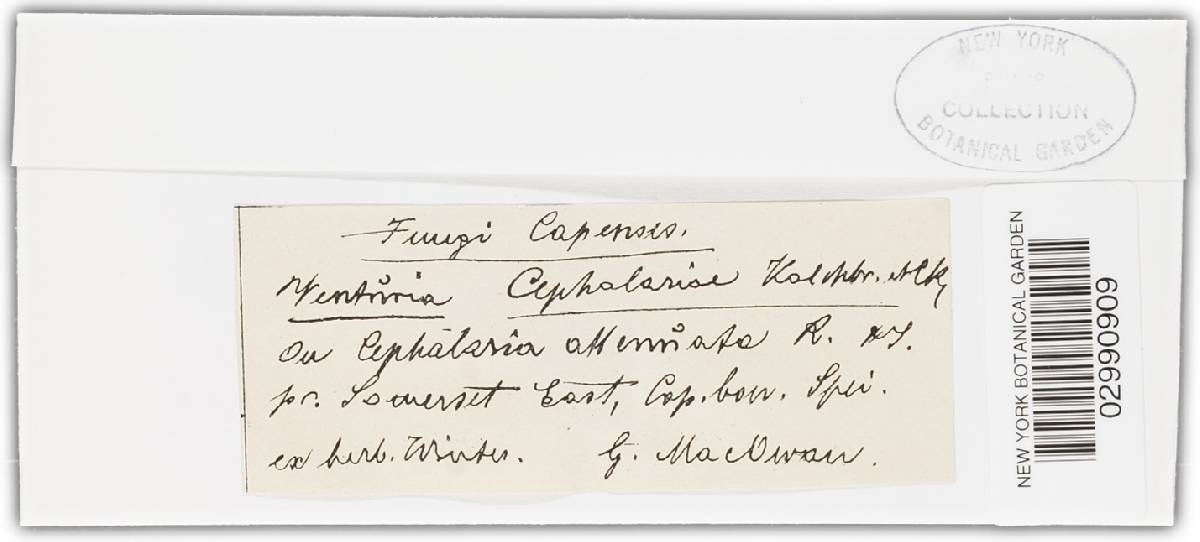 NEW YORK
COLLECTION
BOTANICAL GARDEN
Fungi Capenses.
Ventŭria Cephalariae Kalchbr. et Ck,
On Cephălaria attenŭata R. & S.
pr. Somerset East, Cap. bon. Spei.
ex herb. Winter. G. MacOwan.
NEW YORK BOTANICAL GARDEN
02990909